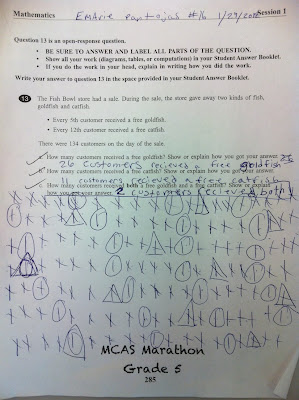 Mathematics EmArie Pantojas #16 1/29/20 Session 1
Question 13 is an open-response question.
• BE SURE TO ANSWER AND LABEL ALL PARTS OF THE QUESTION.
• Show all your work (diagrams, tables, or computations) in your Student Answer Booklet.
• If you do the work in your head, explain in writing how you did the work.
Write your answer to question 13 in the space provided in your Student Answer Booklet.
13 The Fish Bowl store had a sale. During the sale, the store gave away two kinds of fish,
goldfish and catfish.
• Every 5th customer received a free goldfish.
• Every 12th customer received a free catfish.
There were 134 customers on the day of the sale.
a. How many customers received a free goldfish? Show or explain how you got your answer. 26
26 customers recieved a free goldfish
b. How many customers received a free catfish? Show or explain how you got your answer.
11 customers recieved a free catfish
c. How many customers received both a free goldfish and a free catfish? Show or explain
how you got your answer. 2 customers recieved both
MCAS Marathon
Grade 5
285